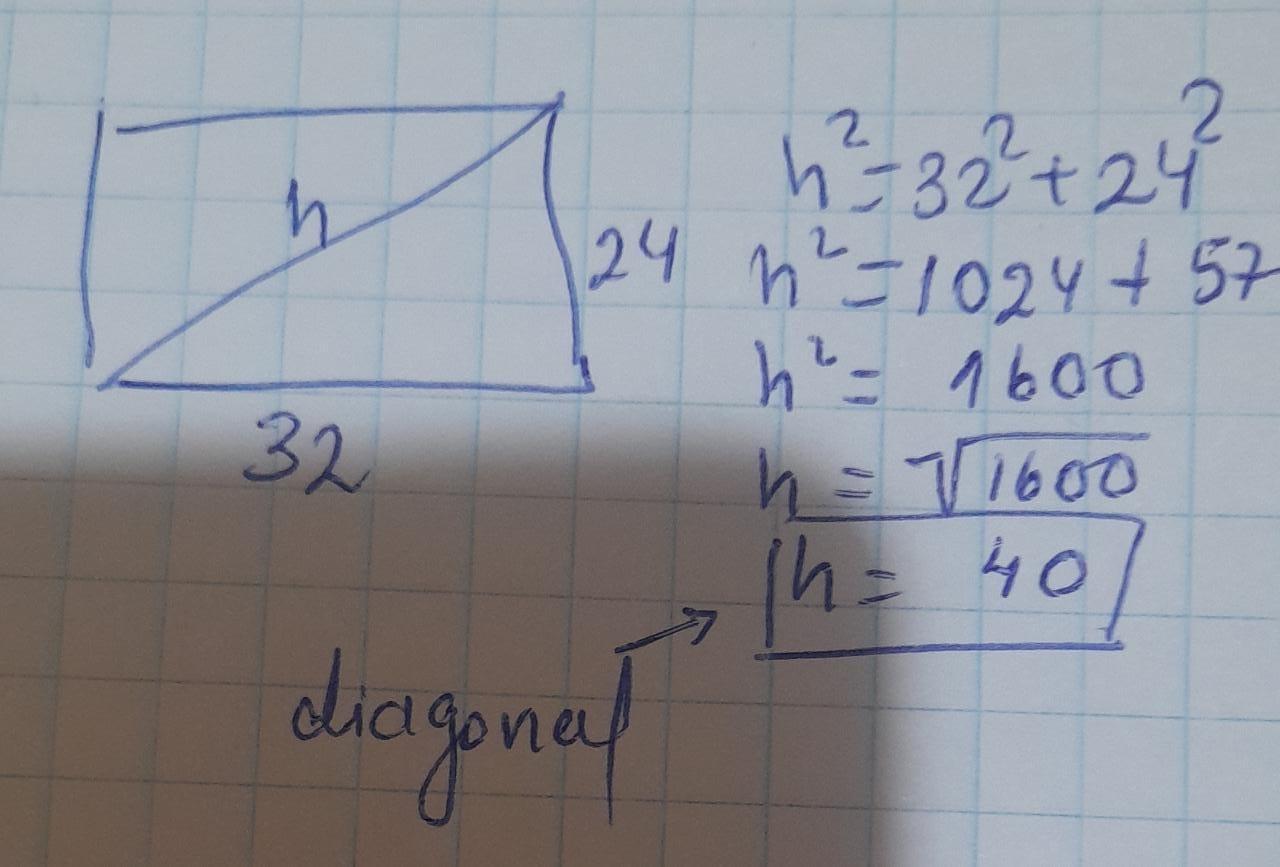 h
24
32
h²=32²+24²
h²=1024+57
h²= 1600
h = √1600
h= 40
diagonal